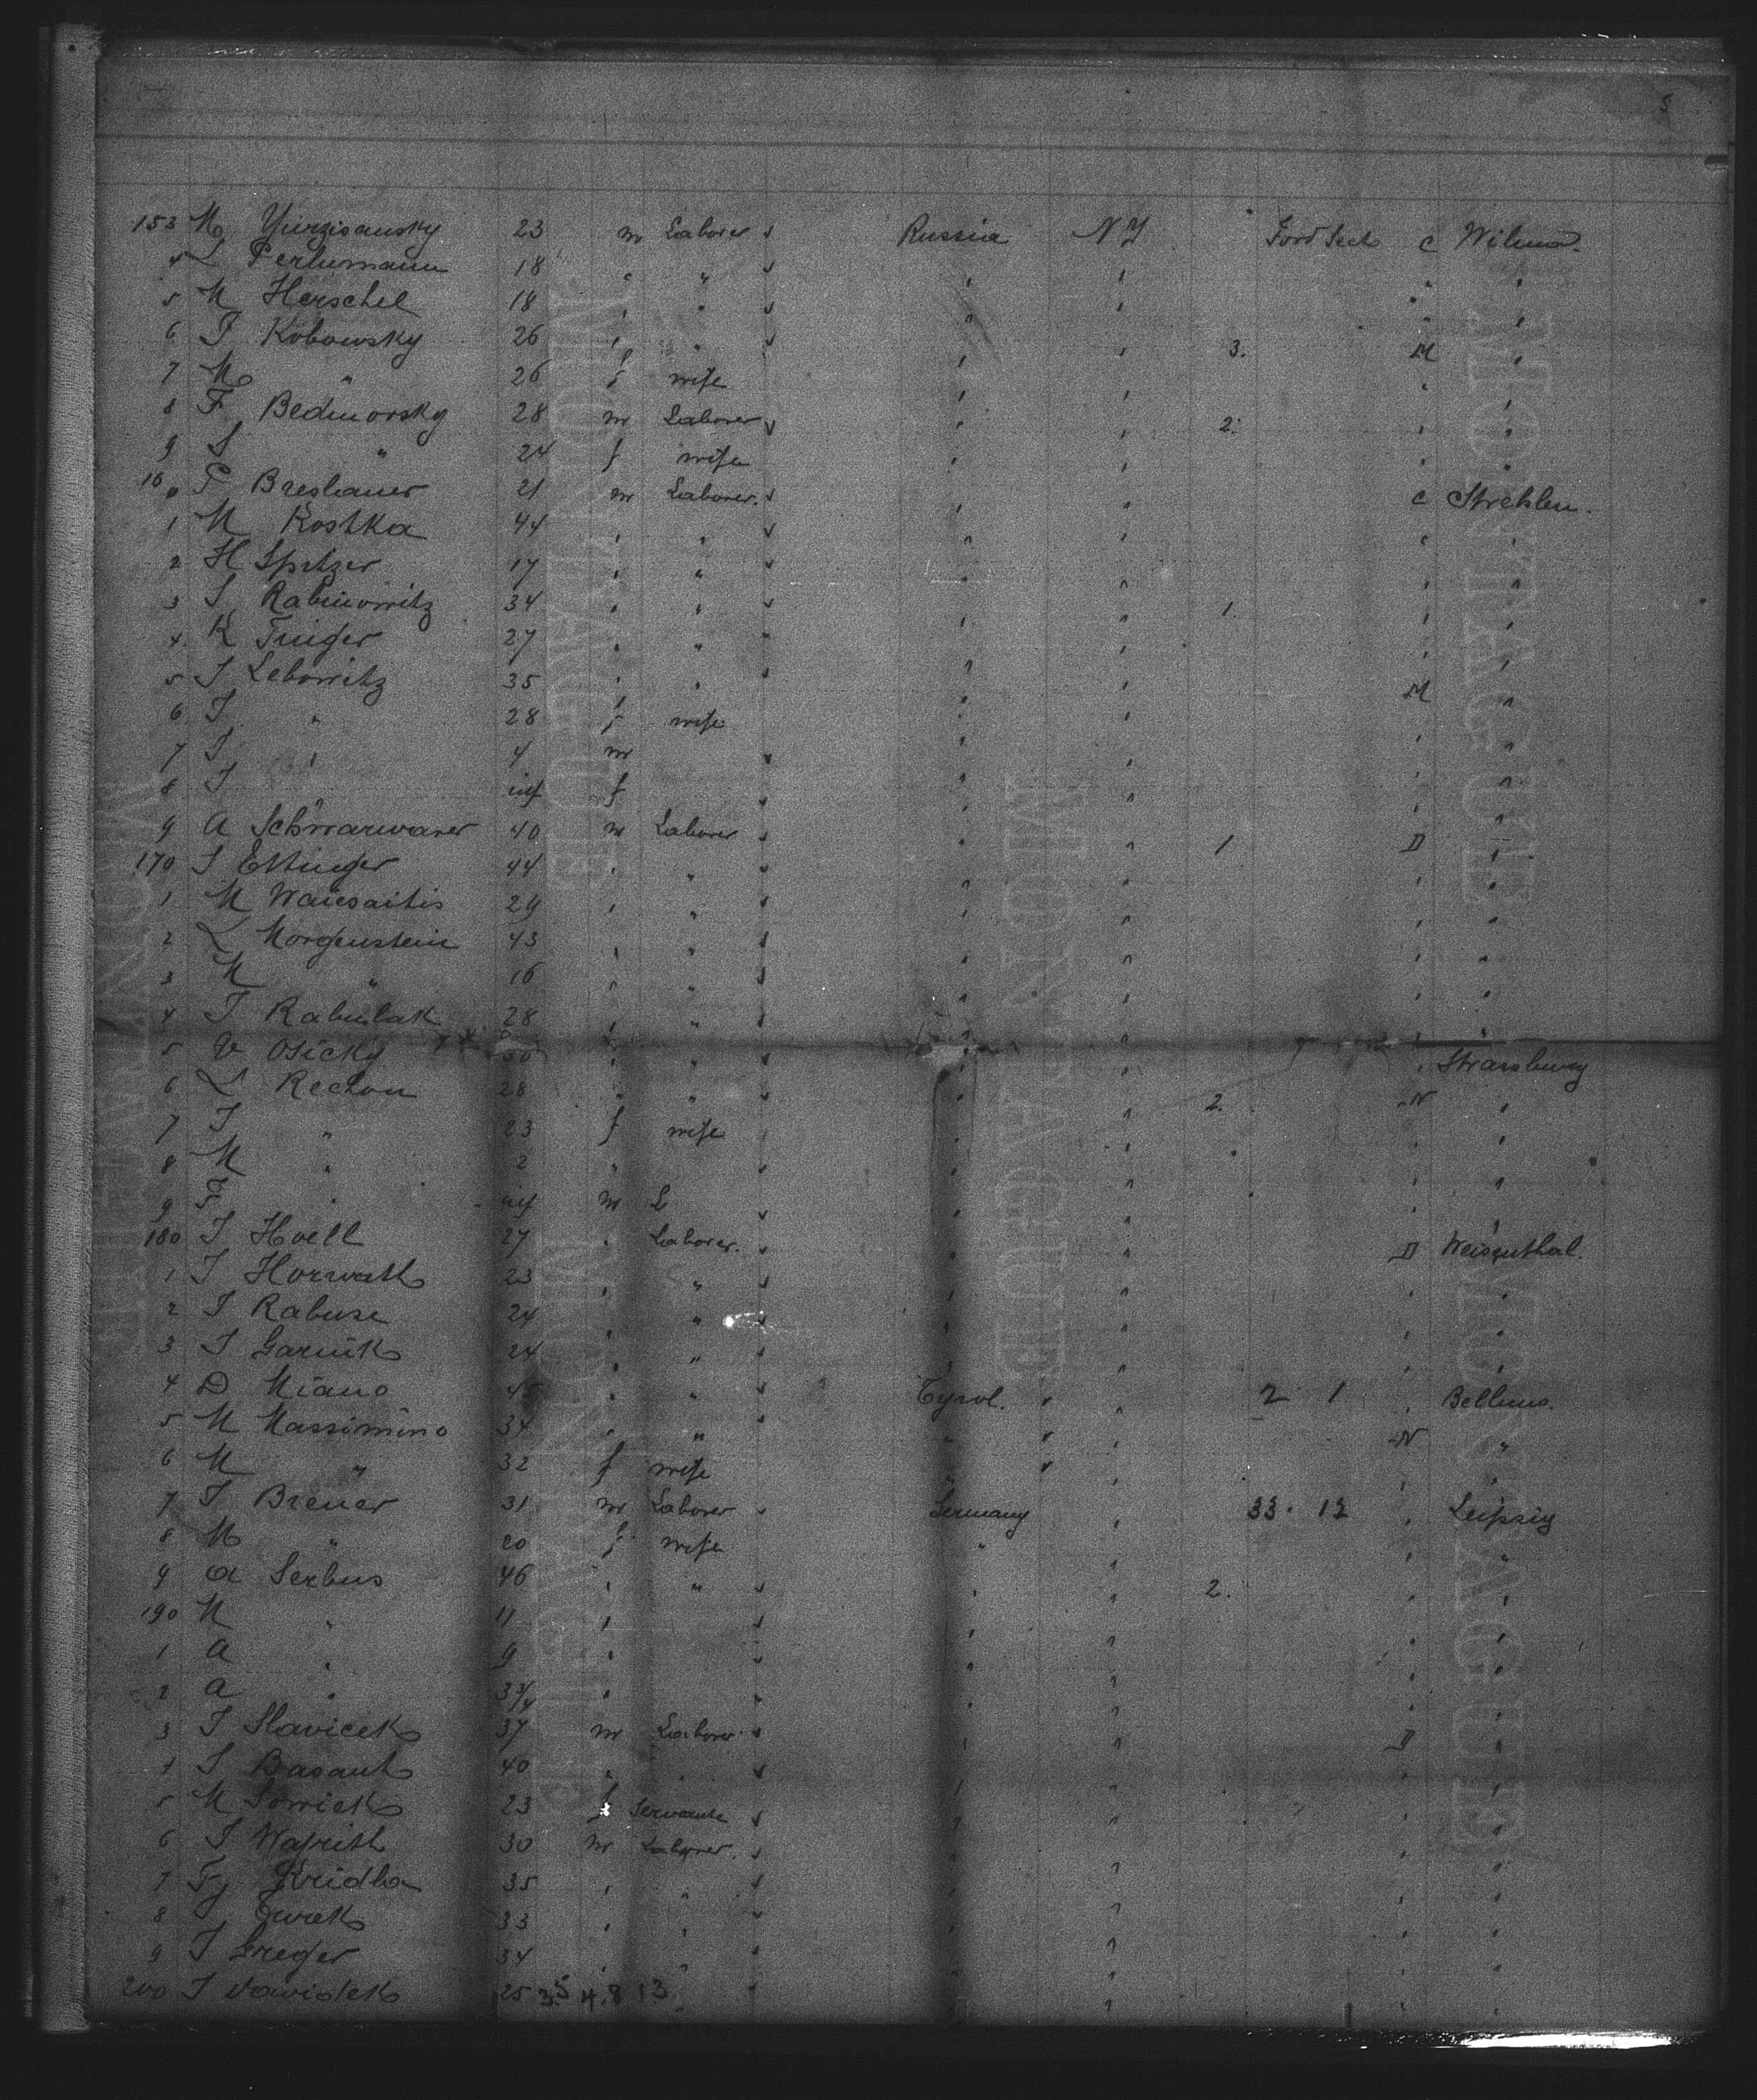 5
153 M Yurzisansky 23 m Laborer Russia NY Ford Seet C Wilna.
4 L Perlumann 18 " "
5 M Herschel 18 " "
6 J Kobowsky 26 " " 3. M
7 M " 26 f wife
8 F Bedmorsky 28 m Laborer 2.
9 S " 24 f wife
160 P Breslauer 21 m Laborer. C Strehlen.
1 M Kostka 44 " "
2 H Spitzer 17 " "
3 S Rabinowitz 34 " " 1.
4 K Tuiger 27 " "
5 J Lebowitz 35 " " M
6 J " 28 f wife
7 J " 4 m
8 J inf f
9 A Schwarwarer 40 m Laborer 1 D
170 J Ettinger 44 " "
1 M Waiesaitis 29 " "
2 L Morgenstein 43 " "
3 M " 16 " "
4 J Rabulak 28 " "
5 V Osicky 30 " " Strassburg
6 L Rechon 28 " " 2. N
7 J " 23 f wife
8 M " 2 "
9 F " inf m L
180 J Hoell 27 " Laborer. D Weisenthal.
1 J Horwath 23 " "
2 J Rabuse 24 " "
3 J Garnik 24 " "
4 D Miano 45 " " Tyrol. 2 1 Belluno.
5 M Massimino 34 " " " N "
6 M " 32 f wife "
7 J Breuer 31 m Laborer Germany 33. 12 Leipzig
8 M " 20 f wife " "
9 A Serbus 46 " " 2.
190 M " 11 "
1 A " 9 "
2 A " 3 3/4 "
3 J Slavicek 37 m Laborer D
4 J Basant 40 " "
5 M Sowick 23 f Servante
6 J Waprith 30 m Laborer.
7 Fj Kridla 35 " "
8 J Turek 33 " "
9 J Greger 34 " "
200 J Davidek 25 35 4.8 13
MONTAGUE
MONTAGUE
MONTAGUE
MONTAGUE
MONTAGUE
MONTAGUE